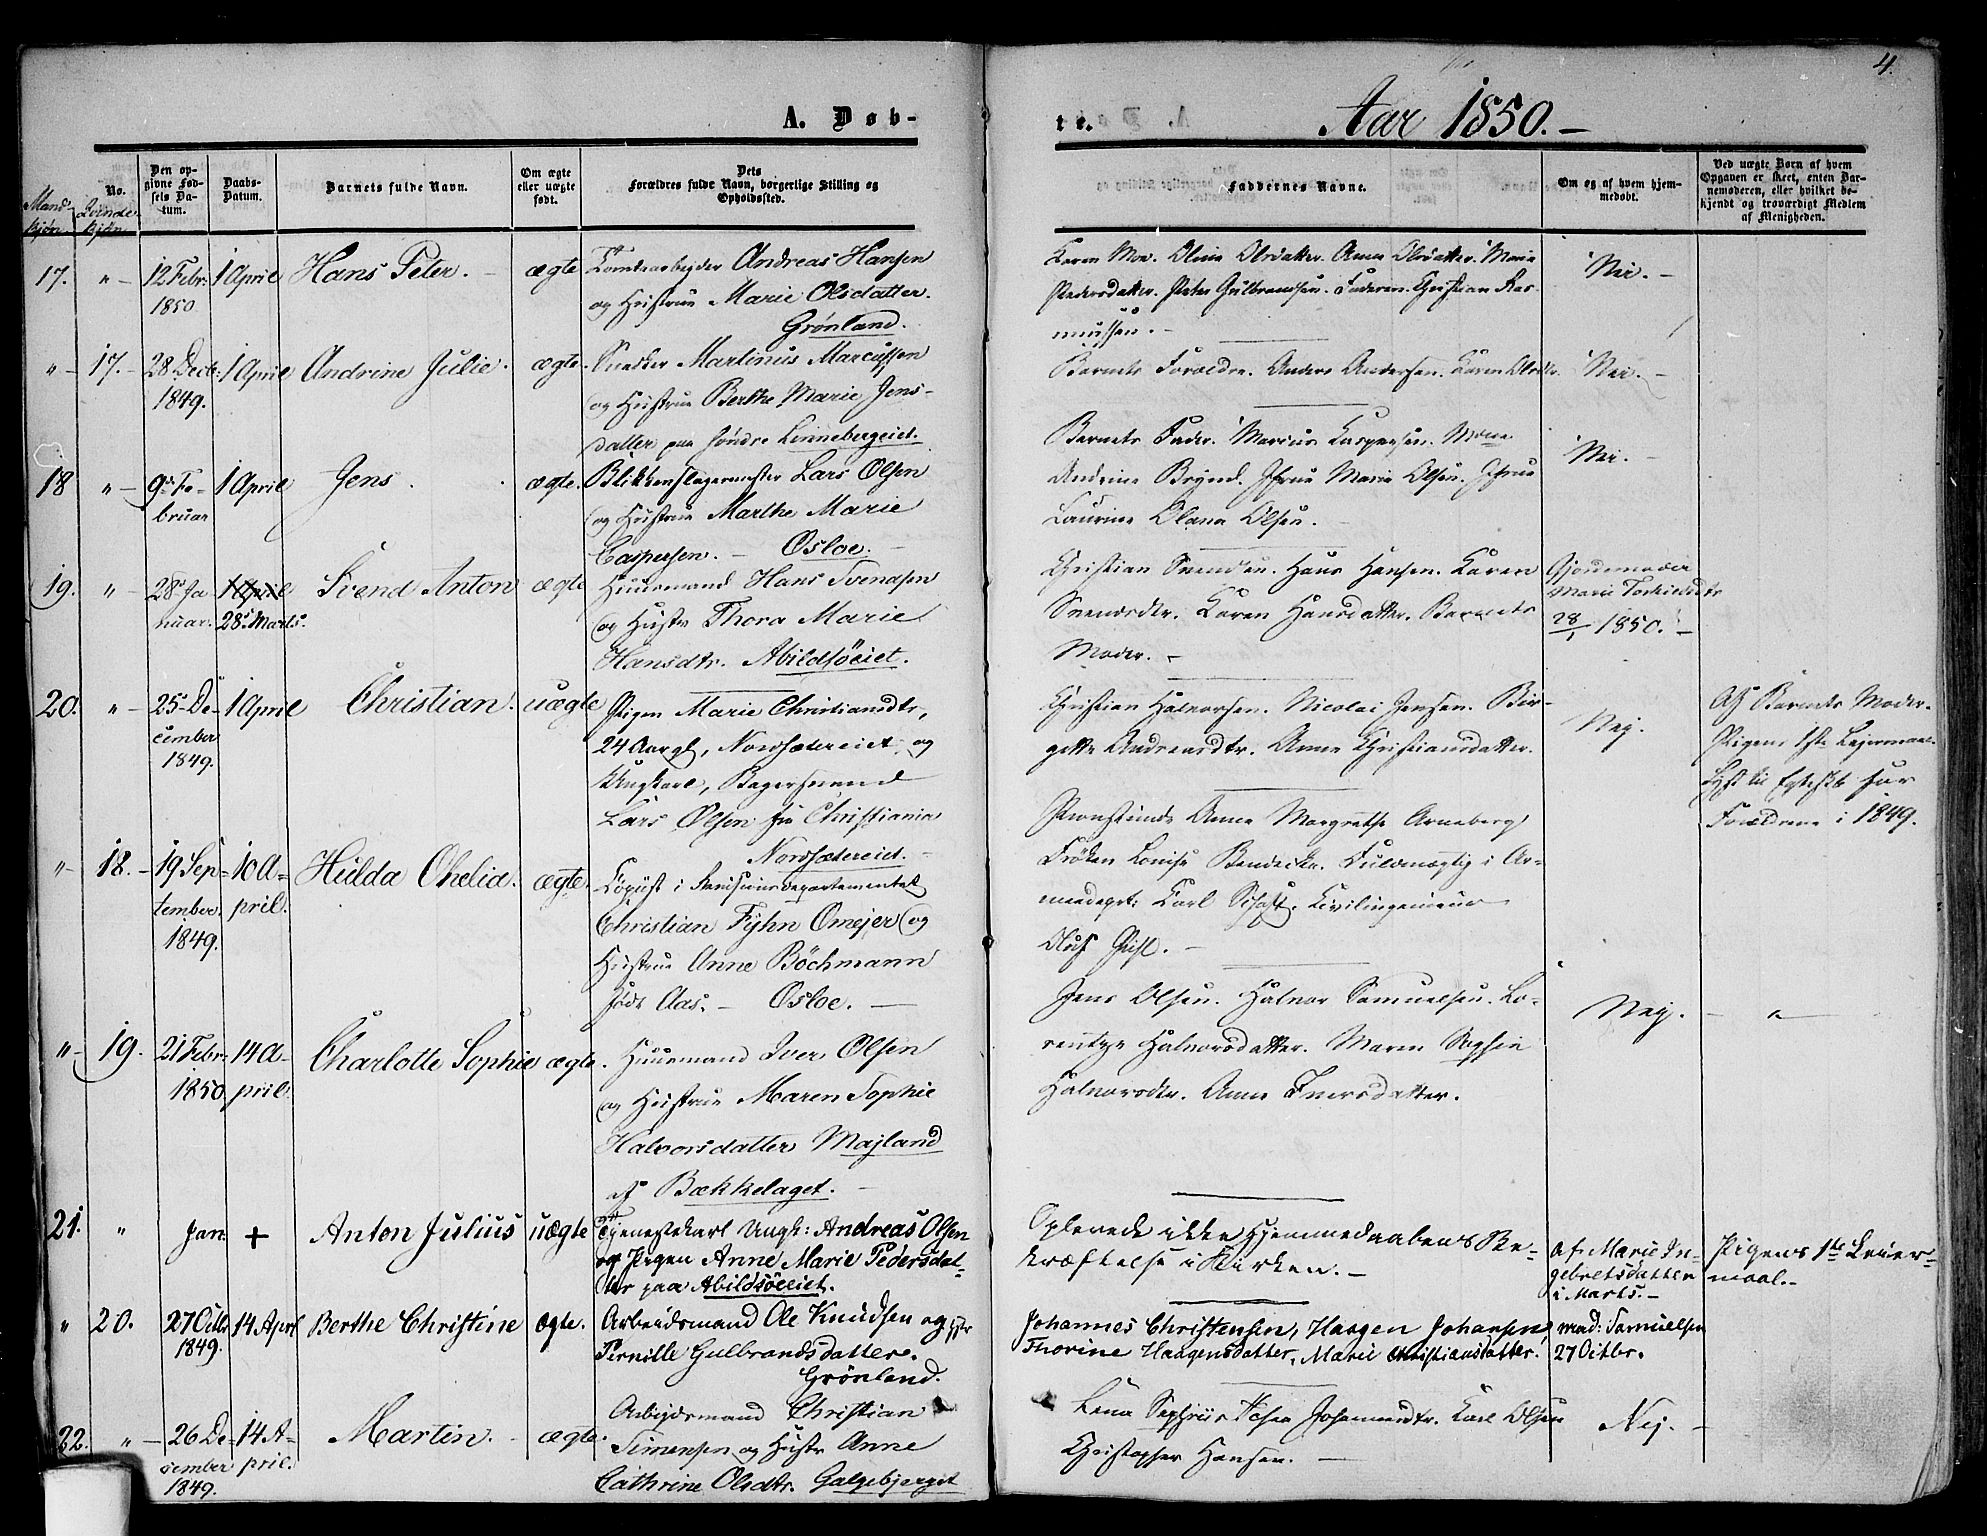 4.
A. Døb-
te.
Aar 1850.-
Mand-
kjøn.
No.
Qvinde-
kjøn
Den op-
givne Fød-
sels Da-
tum.
Daabs-
Datum.
Barnets fulde Navn.
Om ægte
eller uægte
født.
Dets
Forældres fulde Navn, borgerlige Stilling og
Opholdssted.
Faddernes Navne.
Om og af hvem hjem-
medøbt.
Ved uægte Børn af hvem
Opgaven er skeet, enten Bar-
nemoderen, eller hvilket be-
kjendt og troværdigt Medlem
af Menigheden.
17. " - 12 Febr: 1 April Hans Peter. - ægte Tomtearbeider Andreas Hansen
1850 og Hustrue Marie Olsdatter.
Grønland.
Karen Moe. Oline Olsdatter. Anne Olsdatter. Marie
Pedersdatter. Peter Gulbrandsen. Faderen. Christian Ras-
mussen. -
Nei. -
" - 17. - 28 Decb: 1 April Andrine Julie. ægte. Snedker Martinus Marcussen
1849. og Hustrue Berthe Marie Jens-
datter paa søndre Linnebergeiet.
Barnets Forældre. Anders Andersen. Karen Olsdtr.
Nei. -
18 " - 9de Fe- 1 April Jens. ægte. Blikkenslagermester Lars Olsen
bruar og Hustrue Marthe Marie
Caspersen. - Osloe. -
Barnets Fader. Marius Caspersen. Mone
Andrine Brynd. Jfrue Marie Olsen. Jfrue
Laurine Olana Olsen.
Nei. -
19. " - 28de Ja 1 April Svend Anton ægte Huusmand Hans Svendsen
nuar. 28de Marts. og Hustr Thora Marie
Hansdtr. Abildsöeiet.
Christian Svendsen. Hans Hansen. Karen
Svendsdtr. Karen Hansdatter. Barnets
Moder. -
Gjordemoder
Marie Torkildsdtr
28/1 1850. -
20. " - 25de De- 1 April Christian. uægte Pigen Marie Christiansdtr,
cember 24 Aar gl, Nordsætereiet og
1849. Ungkarl, Bagersvend
Lars Olsen fra Christiania
Nordsætereiet. -
Christian Halvorsen. Nicolai Jensen. Bir-
gitte Andreasdtr. Anne Christiansdatter.
Nej.
Af Barnets Moder.
Pigens 1ste Lejermaal.
Lyst til Egteskb har
Forældrene i 1849.
"- 18. - 19 Sep- 10 A- Hulda Ohelia. ægte. Copiist i Revisionsdepartementet
tember pril. Christian Fyhn Omejer og
1849. Hustrue Anne Böchmann
föd Aas. - Osloe. -
Provstinde Anne Margrethe Arneberg
Frøken Louise Bendeke. Fuldmægtig i Ar-
meedept: Carl Civilingenieur
Oluf -
"- 19. 21 Febr. 14 A- Charlotte Sophie ægte. Huusmand Iver Olsen
1850. pril. og Hustrue Maren Sophie
Halvorsdatter Majland
af Bækkelaget. -
Jens Olsen. Halvor Samuelsen. Lo-
rentze Halvorsdatter. Maren Sophie
Halvorsdtr. Anne Iversdatter.
Nej. - "
21. " Jan: + Anton Julius uægte Tjenestekarl Ungk: Andreas Olsen
og Pigen Anne Marie Pedersdat-
ter paa Abildsöeiet.
Oplevede ikke Hjemmedaabens Be-
kræftelse i Kirken. -
af. Marie In-
gebretsdatter
i Marts. -
Pigens 1ste Leier-
maal. -
" 20. 27 Octbr 14 Aprl Berthe Christine ægte. Arbeidsmand Ole Knudsen og Hstr
1849. Pernille Gulbrandsdatter.
Grønland.
Johannes Christensen, Haagen Johansen
Thorine Haagensdatter, Marie Christiansdatter.
mad: Samuelsen
27 Octbr.
22. " - 26 De- 14 A- Martin. - ægte. Arbejdsmand Christian
cember pril. Simensen og Hustr Anne
1849. Cathrine Olsdtr. Galgebjerget
Lena Johannesdtr. Carl Olsen
Christopher Hansen. -
Nej. -